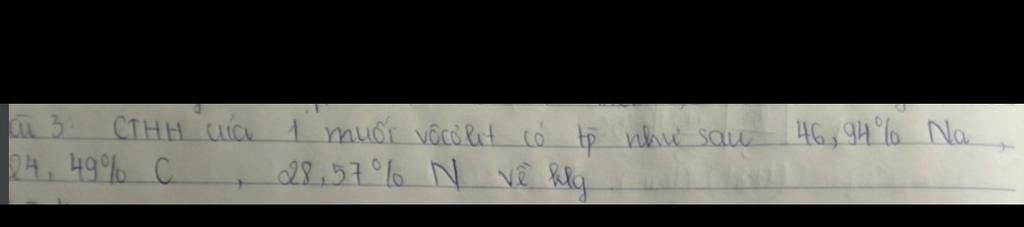 âu 3: CTHH của 1 muối vôcơ có tp như sau 46,94% Na,
24,49% C, 28,57% N về klg